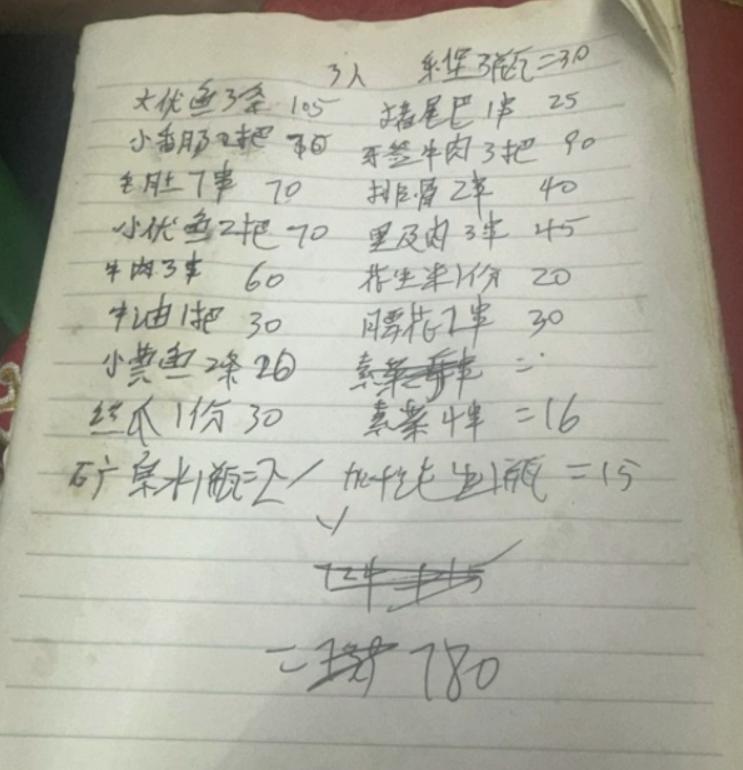 3人 乐堡3瓶=30
大优鱼3条 105 猪尾巴1串 25
小香肠2把 牙签牛肉3把 90
毛肚7串 70 排骨2串 40
小优鱼2把 70 里及肉3串 45
牛肉3串 60 花生米1份 20
牛油1把 30 腰花2串 30
小黄鱼2条 26 素菜 =
丝瓜1份 30 素菜4串 =16
矿泉水1瓶=2 1瓶 =15
= 780